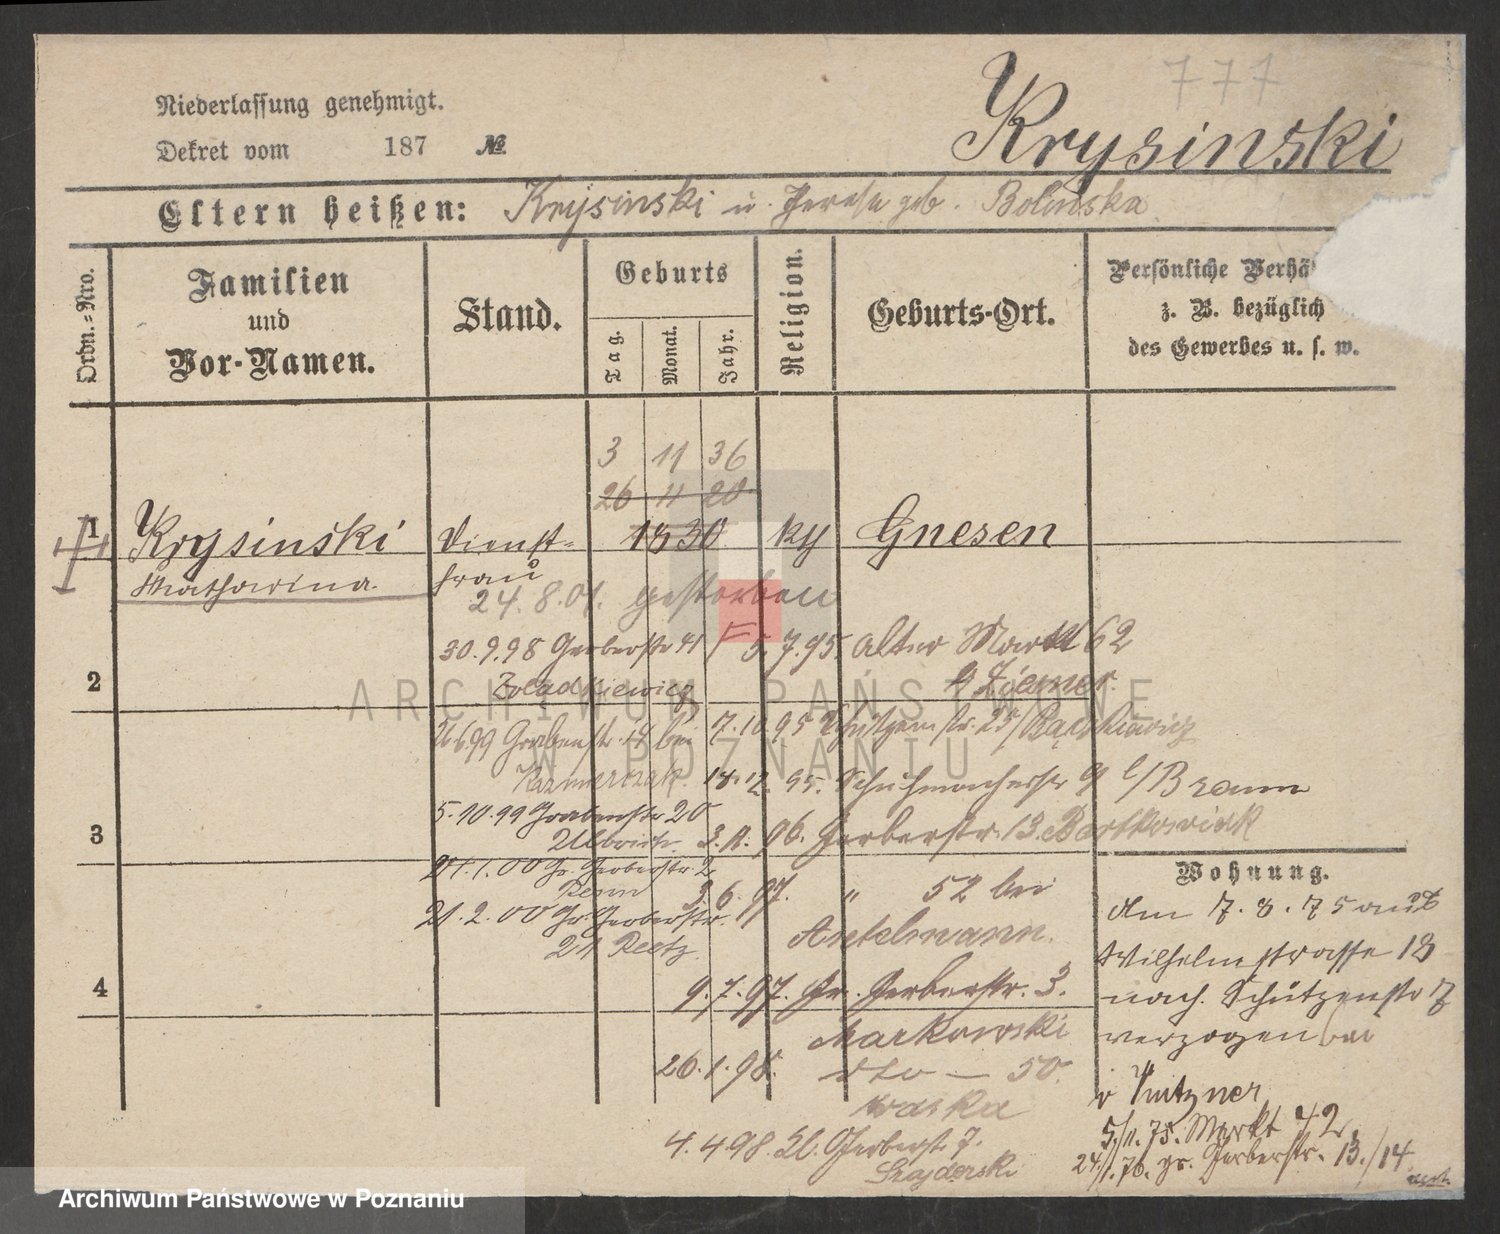 777
Niederlassung genehmigt.
Krysinski
Dekret vom 187 №
Eltern heißen: Krysinski u. Therese geb. Bolinska
Ordn.-Nro.
Familien
und
Vor-Namen.
Stand.
Geburts
Tag.
Monat.
Jahr.
Religion.
Geburts-Ort.
Persönliche Verhä
z. B. bezüglich
des Gewerbes u. s. w.
3 11 36
26 11 20
1 Krysinski Dienst- 1830 ky Gnesen
frau
24.8.01. gestorben
30.9.98 Gerberstr 41
5.7.95. Alter Markt 62
2
26.6.99 Grabenstr. 14 bei
7.10.95 Schützenstr. 25/
Kazmierczak.
18.12.95. Schuhmacherstr 9 b/Braun
5.10.99 Grabenstr 20
3
3. 96. Gerberstr. 13. Bartkowiak
21.1.00 Gr. Gerberstr 2
3.6.97. " 52 bei
21.2.00 Gr. Gerberstr.
21 Reetz.
Antelmann.
4
9.7.97. Gr. Gerberstr. 3.
Markowski
26.1.98. dto — 50.
4.4.98. Gerberst. 7.
Szajderski
Wohnung.
Am 7.8.75 aus
Wilhelmstrasse 18
nach Schützenstr 7
verzogen bei
5/11.75. Markt 42.
24/1.76. gr. Gerberstr. 13./14.
ARCHIWUM PAŃSTWOWE
W POZNANIU
Archiwum Państwowe w Poznaniu